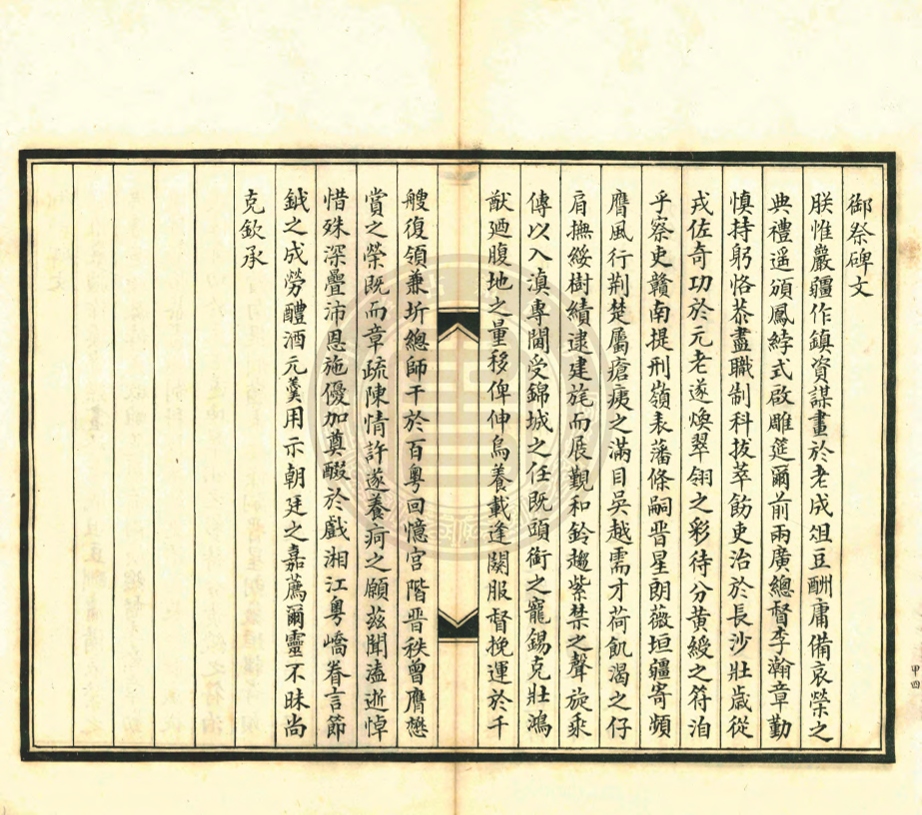 御祭碑文
朕惟嚴疆作鎮資謀畫於老成俎豆酬庸備哀榮之
典禮遥頒鳳綍式啟雕筵爾前兩廣總督李瀚章勤
慎持躬恪恭盡職制科拔萃飭吏治於長沙壯歲從
戎佐奇功於元老遂煥翠翎之彩待分黃綬之符洎
乎察吏贛南提刑嶺表藩條嗣晋星朗薇垣疆寄頻
膺風行荆楚屬瘡痍之滿目吳越需才荷飢渴之仔
肩撫綏樹績逮建旄而展覲和鈴趨紫禁之聲旋乘
傳以入滇專閫受錦城之任既頭銜之寵錫克壯鴻
猷廼腹地之量移俾伸烏養載逢闋服督挽運於千
艘復領兼圻總師干於百粤回憶宫階晋秩曾膺懋
賞之榮既而章疏陳情許遂養疴之願兹聞溘逝悼
惜殊深疊沛恩施優加奠醊於戲湘江粤嶠眷言節
鉞之成勞醴酒元羹用示朝廷之嘉薦爾靈不昧尚
克欽承
甲四